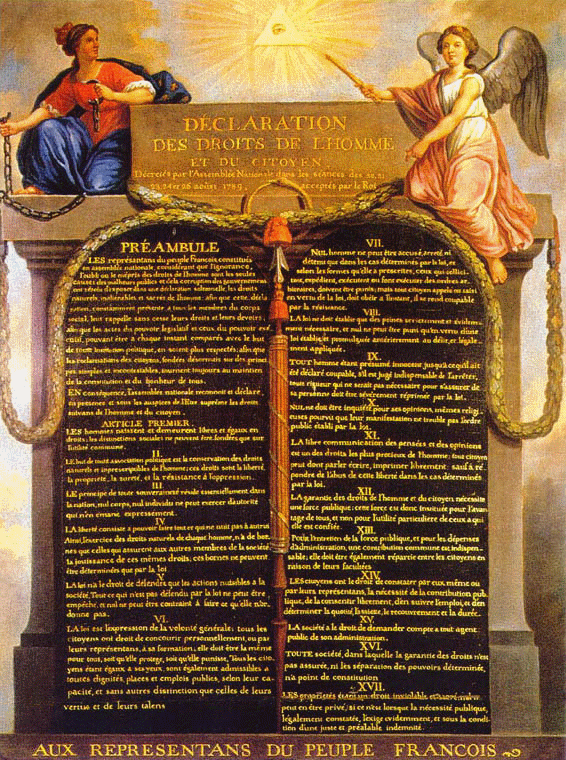 DÉCLARATION
DES DROITS DE L'HOMME
ET DU CITOYEN,
Décretés par l'Assemblée Nationale dans les séances des 20, 21
23, 24 et 26 août 1789, acceptés par le Roi
PRÉAMBULE
LES représentans du peuple Francois, constitués
en assemblée nationale, considérant que l'ignorance,
l'oubli ou le mépris des droits de l'homme sont les seules
causes des malheurs publics et de la corruption des gouvernemens
ont résolu d'exposer dans une déclaration solemnelle, les droits
naturels, inaliénables et sacrés de l'homme; afin que cette décla
ration, constamment présente a tous les membres du corps
social, leur rappelle sans cesse leurs droits et leurs devoirs;
afin que les actes du pouvoir legislatif et ceux du pouvoir exé
cutif, pouvant être a chaque instant comparés avec le but
de toute institution politique, en soient plus respectés; afin que
les reclamations des citoyens, fondées désormais sur des princi
pes simples et incontestables, tournent toujours au maintien
de la constitution et du bonheur de tous.
EN conséquence, l'assemblée nationale reconnoit et déclare,
en presence et sous les auspices de l'Etre suprême les droits
suivans de l'homme et du citoyen.
ARTICLE PREMIER.
LES hommes naissent et demeurent libres et égaux en
droits; les distinctions sociales ne peuvent être fondées que sur
l'utilité commune.
II.
LE but de toute association politique est la conservation des droits
naturels et imprescriptibles de l'homme; ces droits sont la liberté,
la propriété, la sureté, et la résistance à l'oppression.
III.
LE principe de toute souveraineté réside essentiellement dans
la nation, nul corps, nul individu ne peut exercer d'autorité
qui n'en emane expressement.
IV.
LA liberté consiste a pouvoir faire tout ce qui ne nuit pas à autrui
Ainsi, l'exercice des droits naturels de chaque homme, n'a de bor
nes que celles qui assurent aux autres membres de la société
la jouissance de ces mêmes droits; ces bornes ne peuvent
être déterminées que par la loi
V.
LA loi n'a le droit de défendre que les actions nuisibles à la
société. Tout ce qui n'est pas défendu par la loi ne peut être
empêché, et nul ne peut être contraint à faire ce qu'elle n'or
donne pas.
VI.
LA loi est l'expression de la volonté générale; tous les
citoyens ont droit de concourir personnellement, ou par
leurs représentans, à sa formation; elle doit être la même
pour tous, soit qu'elle protege, soit qu'elle punisse. Tous les cito
yens étant égaux à ses yeux, sont également admissibles à
toutes dignités, places et emplois publics, selon leur ca
pacité, et sans autres distinction que celles de leurs
vertus et de leurs talens
VII.
NUL homme ne peut être accusé, arreté, ni
détenu que dans les cas déterminés par la loi, et
selon les formes qu'elle a prescrites, ceux qui sollici
tent, expédient, exécutent ou font exécuter des ordres ar
bitraires, doivent être punis; mais tout citoyen appelé ou saisi
en vertu de la loi, doit obéir a l'instant, il se rend coupable
par la résistance.
VIII.
LA loi ne doit établir que des peines strictement et évidem
ment nécessaire, et nul ne peut être puni qu'en vertu d'une
loi établie et promulguée antérierement au délit, et légale
ment appliquée.
IX.
TOUT homme étant présumé innocent jusqu'à ce qu'il ait
été déclaré coupable, s'il est jugé indispensable de l'arrêter,
toute rigueur qui ne serait pas nécessaire pour s'assurer de
sa personne doit être sévèrement réprimée par la loi.
X.
NUL ne doit être inquiété pour ses opinions, mêmes religi
euses pourvu que leur manifestation ne trouble pas l'ordre
public établi par la loi.
XI.
LA libre communication des pensées et des opinions
est un des droits les plus precieux de l'homme; tout citoyen
peut dont parler écrire, imprimer librement: sauf à ré
pondre de l'abus de cette liberté dans les cas déterminés
par la loi.
XII.
LA garantie des droits de l'homme et du citoyen nécessite
une force publique; cette force est donc instituée pour l'avan
tage de tous, et non pour l'utilité particuliere de ceux a qui
elle est confiée.
XIII.
Pour l'entretien de la force publique, et pour les dépenses
d'administration, une contribution commune est indispen
sable; elle doit être également répartie entre les citoyens en
raison de leurs facultées
XIV.
LES citoyens ont le droit de constater par eux même ou
par leurs représentans, la nécessité de la contribution pub
lique, de la consentir librement, d'en suivre l'emploi, et d'en
déterminer la quotité, l'assiette, le recouvrement et la durée.
XV.
LA société a le droit de demander compte a tout agent
public de son administration.
XVI.
TOUTE société, dans laquelle la garantie des droits n'est
pas assurée, ni les séparation des pouvoirs déterminée,
n'a point de constitution
XVII.
LES propriétés étant un droit inviolable et sacré, nul ne
peut en être privé, si ce n'est lorsque la nécessité publique,
légalement constatée, l'exige évidemment, et sous la condi
tion d'une juste et préalable indemnité.
AUX REPRESENTANS DU PEUPLE FRANCOIS